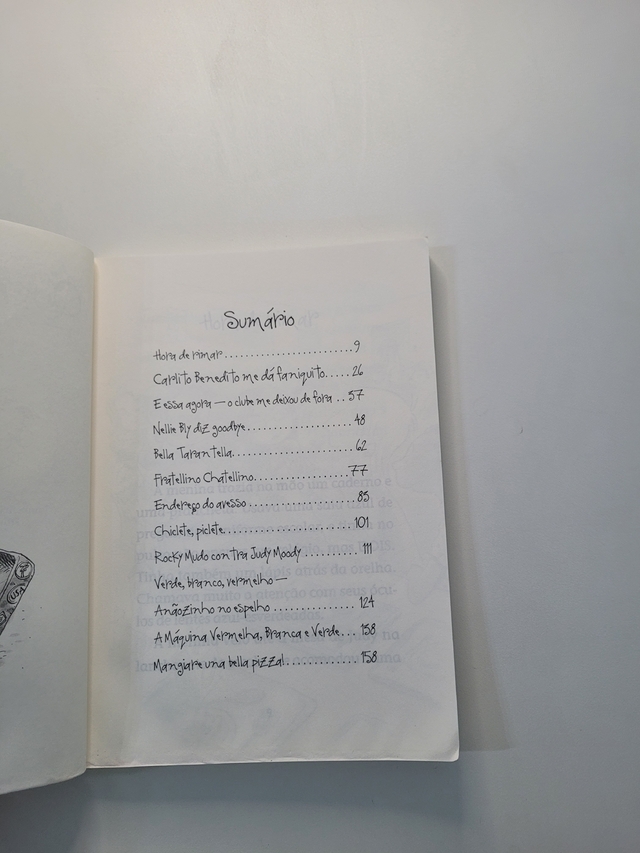 Sumário
Hora de rimar.......................9
Carlito Benedito me dá faniquito.....26
E essa agora — o clube me deixou de fora ..37
Nellie Bly diz goodbye.................48
Bella Tarantella....................62
Fratellino Chatellino................77
Endereço do avesso .................85
Chiclete, piclete.....................101
Rocky Mudo contra Judy Moody..........111
Verde, branco, vermelho —
Anãozinho no espelho .............124
A Máquina Vermelha, Branca e Verde...138
Mangiare una bella pizza!............158
USA